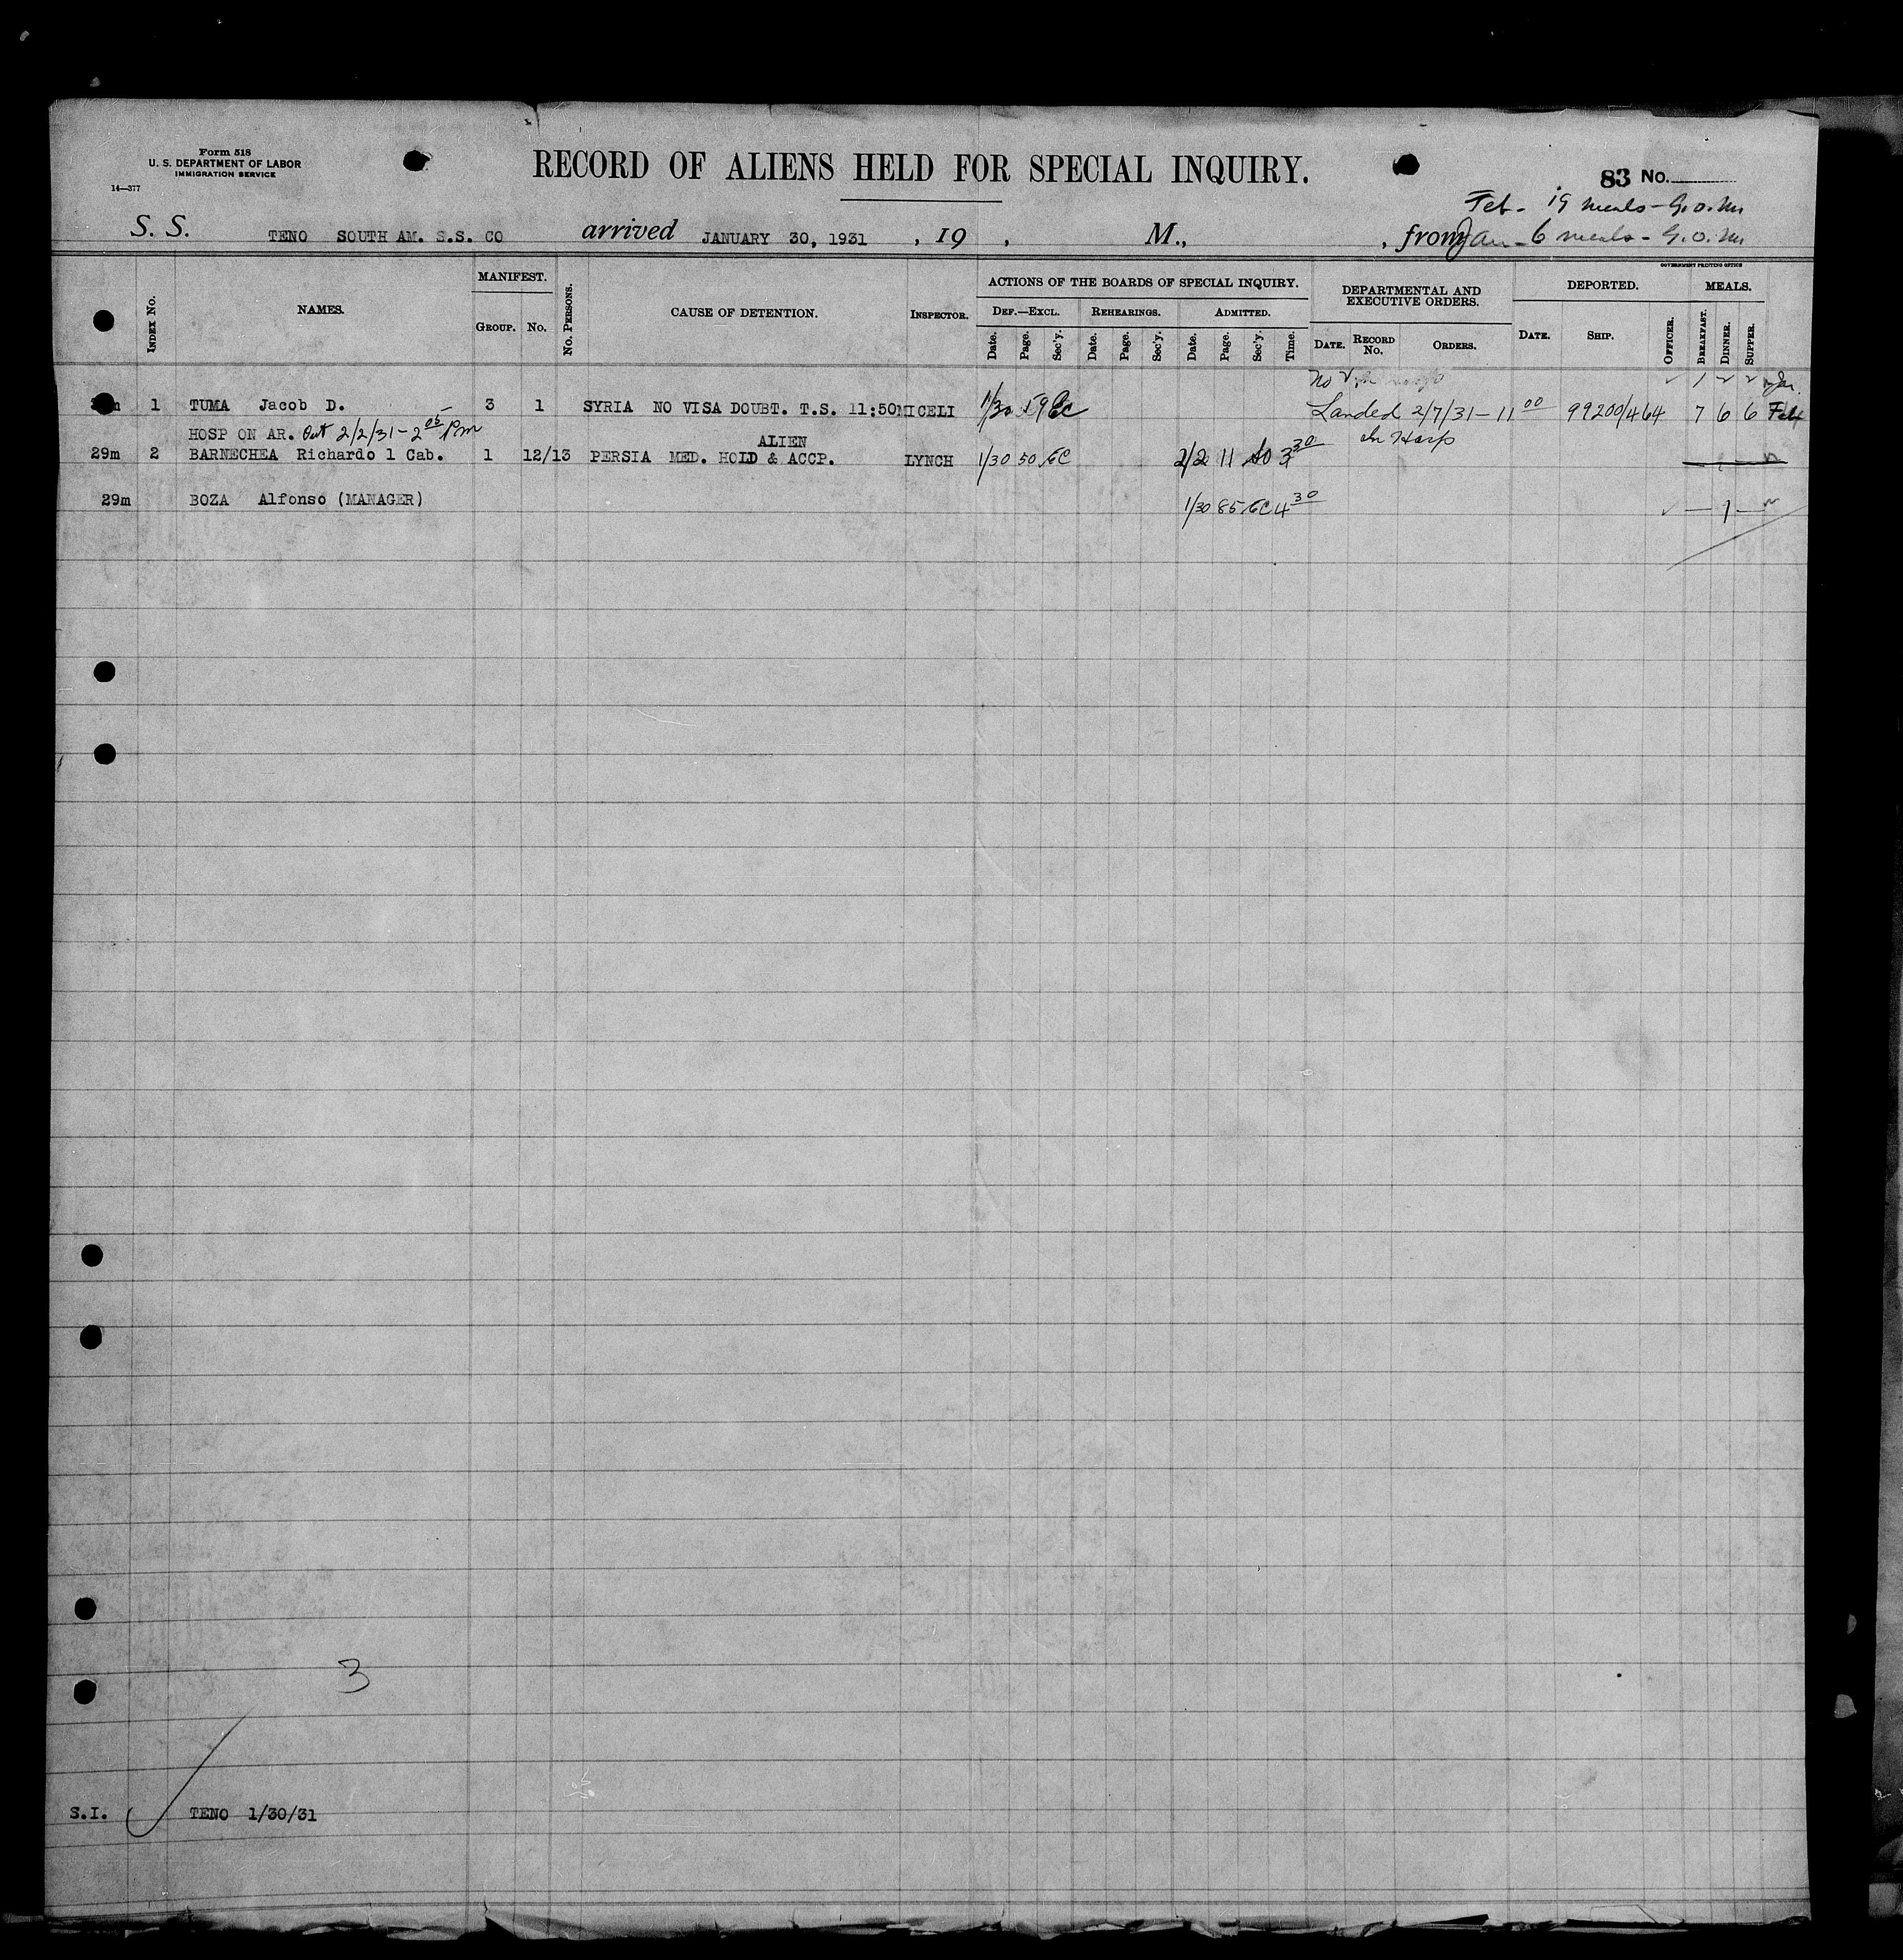 Form 518
U. S. DEPARTMENT OF LABOR
IMMIGRATION SERVICE
14—377
RECORD OF ALIENS HELD FOR SPECIAL INQUIRY.
83 No.
Feb - 19 meals - G.O.M.
S. S. TENO SOUTH AM. S.S. CO arrived JANUARY 30, 1931 , 19 , M., , from Jan - 6 meals - G.O.M.
GOVERNMENT PRINTING OFFICE
INDEX No. NAMES. MANIFEST. GROUP. No. No. PERSONS. CAUSE OF DETENTION. INSPECTOR. ACTIONS OF THE BOARDS OF SPECIAL INQUIRY. DEF.—EXCL. Date. Page. Sec'y. REHEARINGS. Date. Page. Sec'y. ADMITTED. Date. Page. Sec'y. Time. DEPARTMENTAL AND EXECUTIVE ORDERS. DATE. RECORD No. ORDERS. DEPORTED. DATE. SHIP. OFFICER. MEALS. BREAKFAST. DINNER. SUPPER.
No 1 2 2 Jan.
1 TUMA Jacob D. 3 1 SYRIA NO VISA DOUBT. T.S. 11:50 MICELI 1/30 59 EC Landed 2/7/31 - 11 00 99200/464 7 6 6 Feb
HOSP ON AR. Out 2/2/31 - 2 05 PM ALIEN In Hosp
29m 2 BARNECHEA Richardo 1 Cab. 1 12/13 PERSIA MED. HOLD & ACCP. LYNCH 1/30 50 EC 2/2 11 3 30
29m BOZA Alfonso (MANAGER) 1/30 85 EC 4 30 ✓ — 1 —
3
S.I. TENO 1/30/31